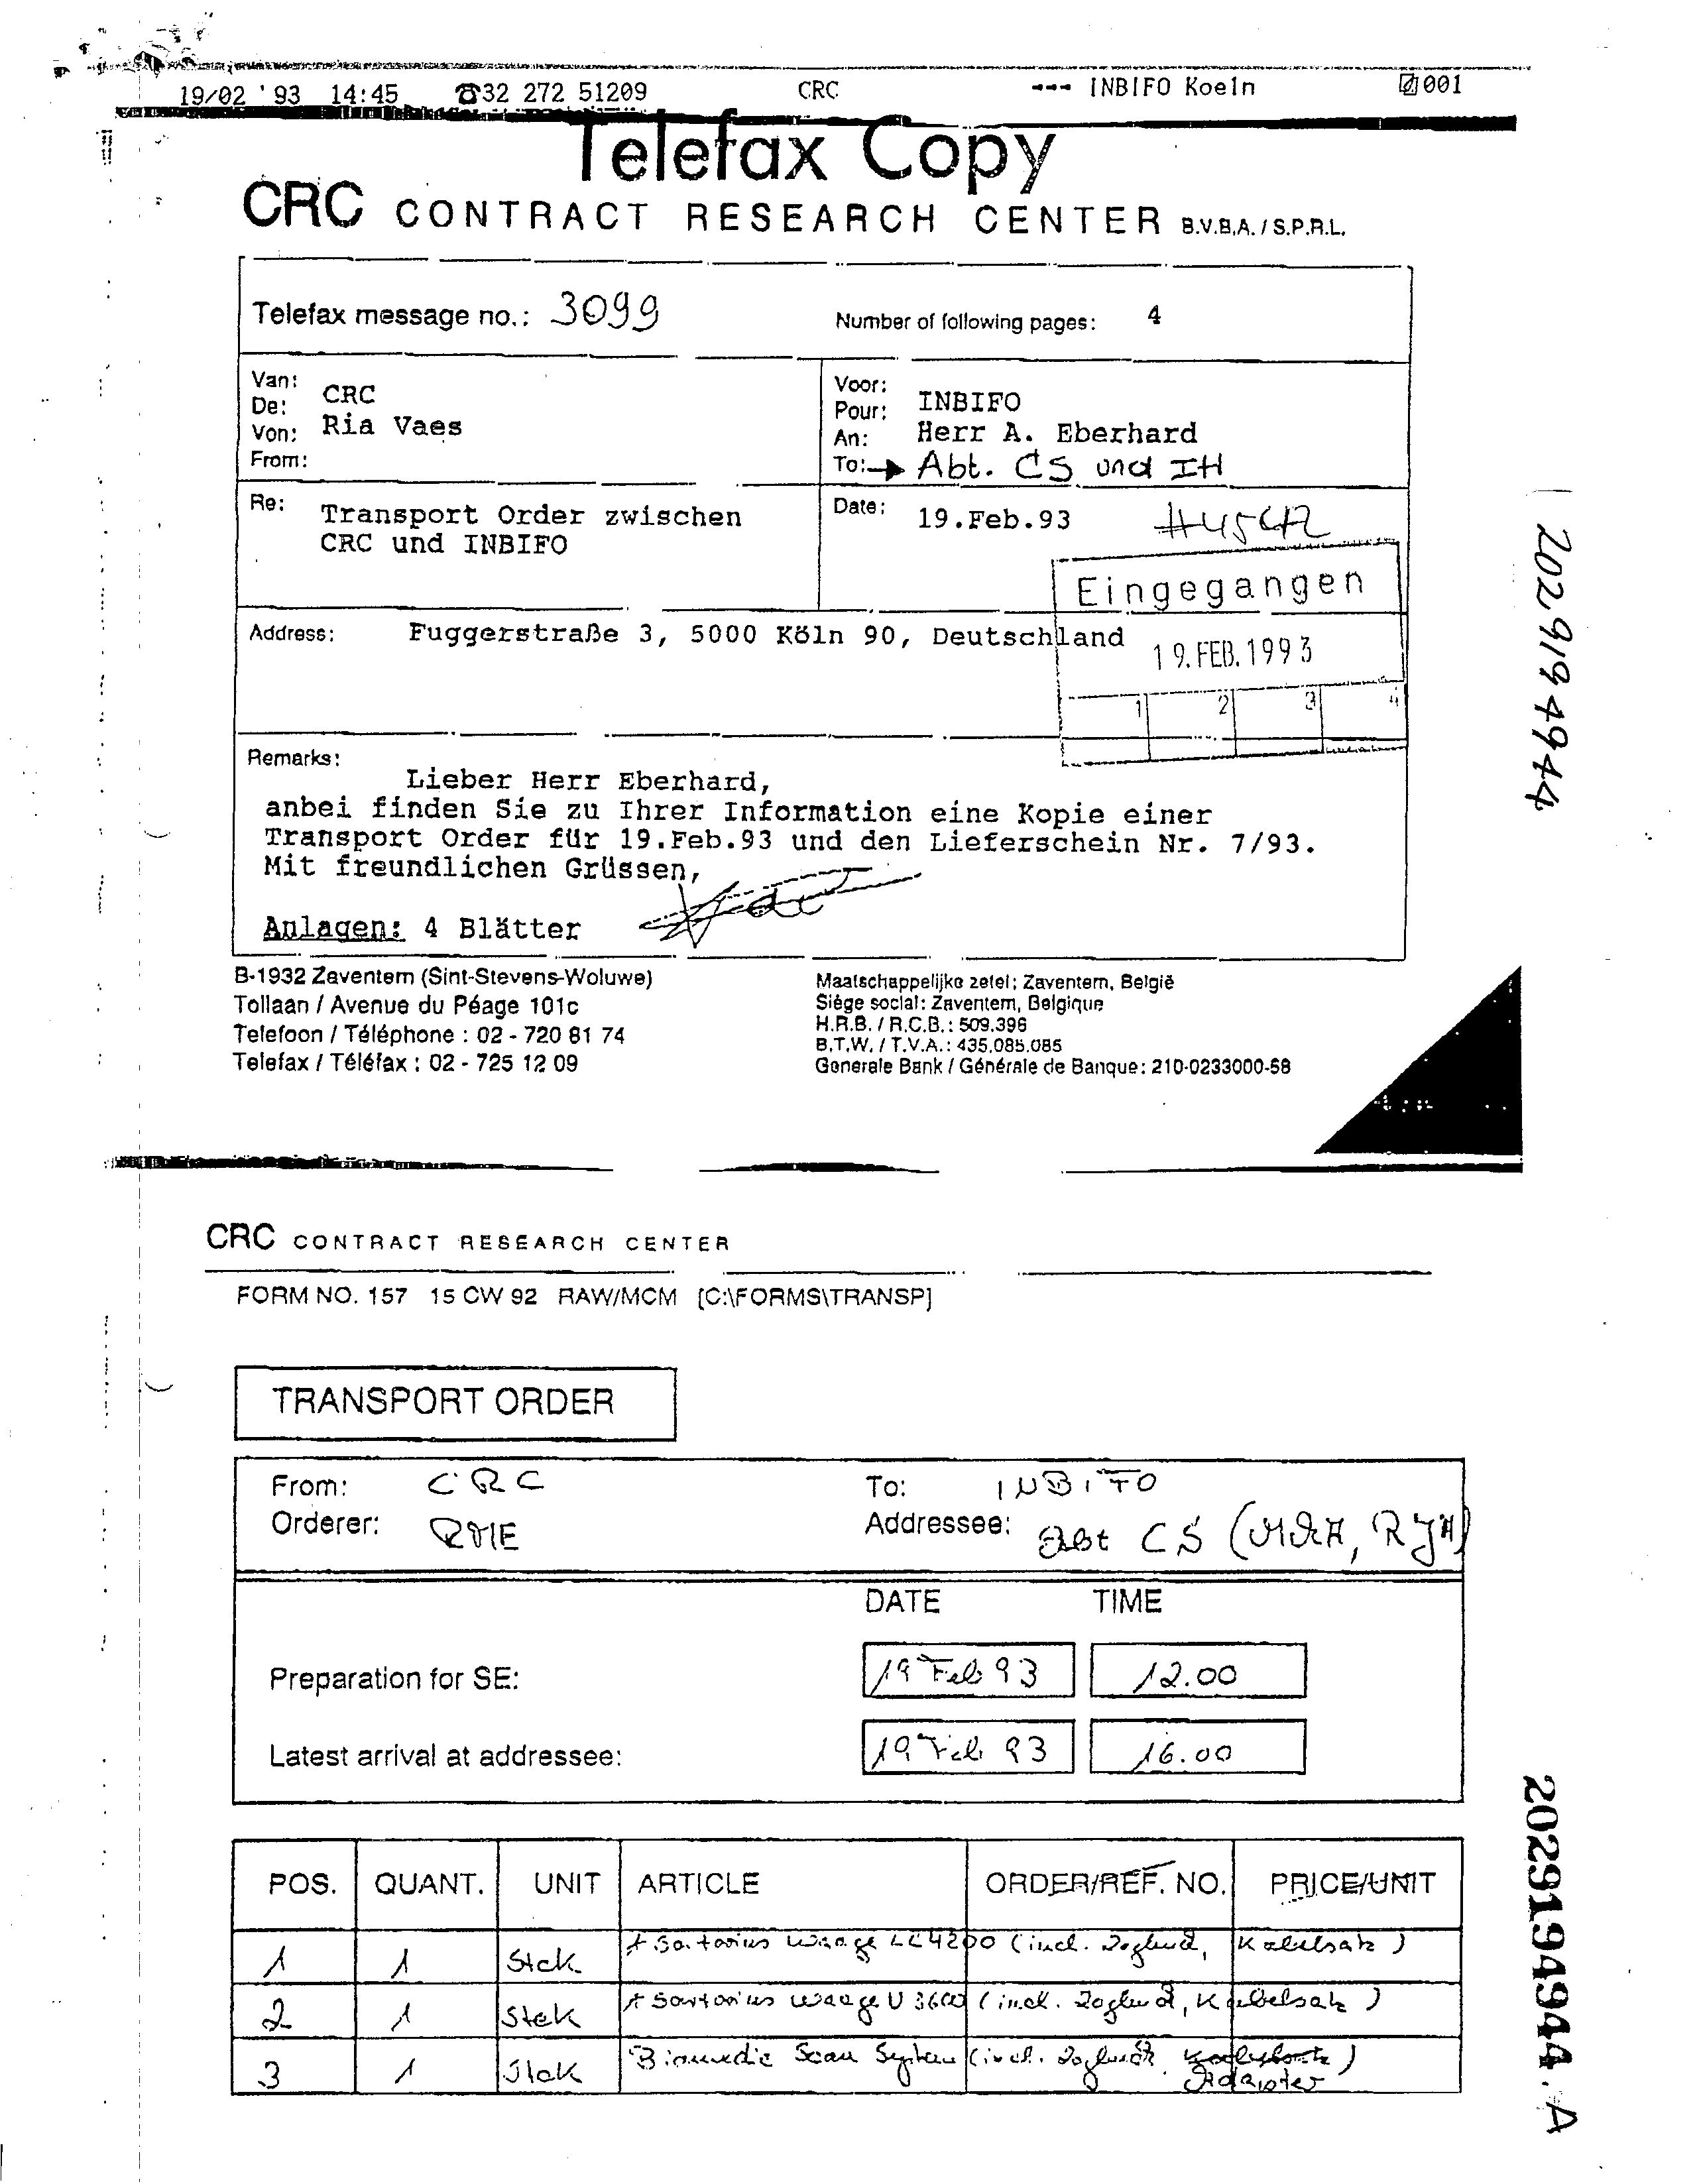 19/02 '93 14:45 ☎32 272 51209 CRC --- INBIFO Koeln 001
Telefax Copy
CRC CONTRACT RESEARCH CENTER B.V.B.A. / S.P.R.L.
Telefax message no.: 3099 Number of following pages: 4
Van:
De: CRC
Von: Ria Vaes
From:
Voor:
Pour: INBIFO
An: Herr A. Eberhard
To: → Abt. CS und IH
Re: Transport Order zwischen
CRC und INBIFO
Date: 19.Feb.93
Eingegangen
19. FEB. 1993
1 2 3 4
Address: Fuggerstraße 3, 5000 Köln 90, Deutschland
Remarks:
Lieber Herr Eberhard,
anbei finden Sie zu Ihrer Information eine Kopie einer
Transport Order für 19.Feb.93 und den Lieferschein Nr. 7/93.
Mit freundlichen Grüssen,
Anlagen: 4 Blätter
B-1932 Zaventem (Sint-Stevens-Woluwe)
Tollaan / Avenue du Péage 101c
Telefoon / Téléphone : 02 - 720 81 74
Telefax / Téléfax : 02 - 725 12 09
Maatschappelijke zetel: Zaventem, België
Siège social: Zaventem, Belgique
H.R.B. / R.C.B.: 509.396
B.T.W. / T.V.A.: 435.085.085
Generale Bank / Générale de Banque: 210-0233000-58
2029194944
CRC CONTRACT RESEARCH CENTER
FORM NO. 157 15 CW 92 RAW/MCM [C:\FORMS\TRANSP]
TRANSPORT ORDER
From: CRC To: INBIFO
Orderer: RME Addressee: Abt CS
DATE TIME
Preparation for SE: 19 Feb 93 12.00
Latest arrival at addressee: 19 Feb 93 16.00
POS. QUANT. UNIT ARTICLE ORDER/REF. NO. PRICE/UNIT
1 1 Stck Sartorius Waage LC4200 (incl. Kabelsatz)
2 1 Stck Sartorius Waage U 3600 (incl. Kabelsatz)
3 1 Stck Biomedic Scan System (incl. Adapter)
2029194944.A